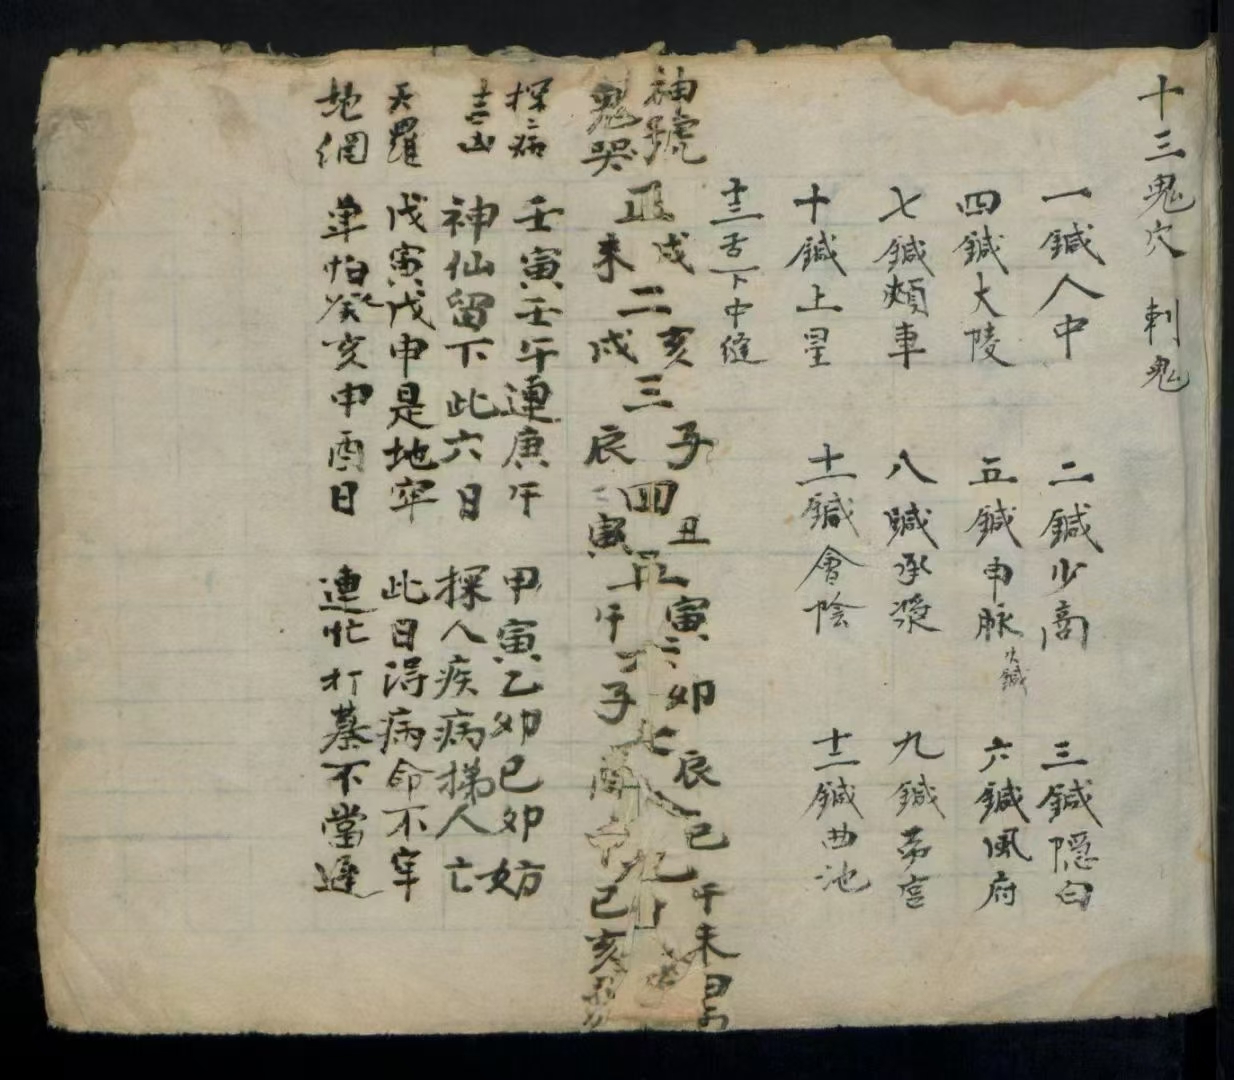 十三鬼穴 刺鬼
一鍼人中 二鍼少商 三鍼隱白
四鍼大陵 五鍼申脉 火鍼 六鍼風府
七鍼頰車 八鍼承漿 九鍼勞宮
十鍼上星 十一鍼會陰 十二鍼曲池
十三舌下中縫
神號 戌 亥 子 丑 寅 卯 辰 巳 午 未
正 二 三 四 五 六 七 八 九 十
鬼哭 未 戌 辰 寅 午 子 酉 申 巳 亥
探病 壬寅壬午連庚午 甲寅乙卯己卯妨
吉凶 神仙留下此六日 探人疾病揥人亡
天羅 戊寅戊申是地牢 此日得病命不牢
地網 単怕癸亥申酉日 連忙打墓不當遲